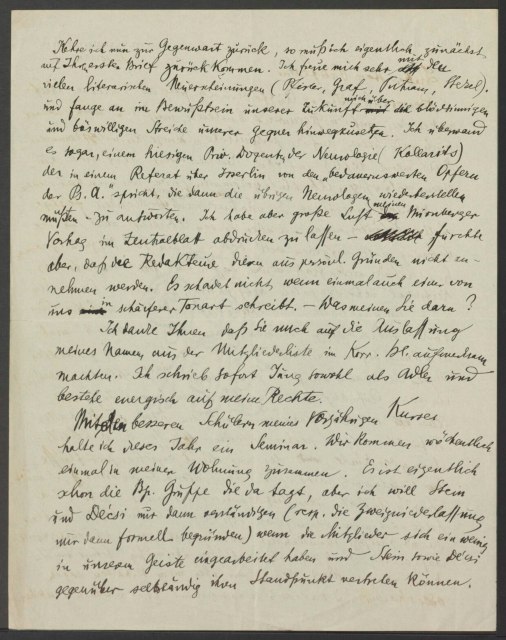 Kehre ich nun zur Gegenwart zurück, so muß ich eigentlich zunächst
auf Ihren ersten Brief zurückkommen. Ich freue mich sehr mit den
vielen literarischen Neuerscheinungen (Pfister, Graf, Putnam, Stekel).
und fange an im Bewußtsein unserer Zukunft mich über die blödsinnigen
und böswilligen Streiche unserer Gegner hinwegzusetzen. Ich überwand
es sogar, einem hiesigen Priv. Dozenten der Neurologie (Kollarits)
der in einem Referat über Isserlin von den „bedauernswerten Opfern
der B. A." spricht, die dann die übrigen Neurologen wiederherstellen
müßten - zu antworten. Ich habe aber große Lust meinen Nürnberger
Vortrag im Zentralblatt abdrucken zu lassen - fürchte
aber, daß die Redakteure diesen aus persönl. Gründen nicht an-
nehmen werden. Es schadet nicht, wenn einmal auch einer von
uns in schärferer Tonart schreibt. - Was meinen Sie dazu?
Ich danke Ihnen daß Sie mich auf die Auslassung
meines Namens aus der Mitgliederliste im Korr. Bl. aufmerksam
machten. Ich schrieb sofort Jung sowohl als Adler und
bestehe energisch auf meine Rechte.
Mit den besseren Schülern meines vorjährigen Kurses
halte ich dieses Jahr ein Seminar. Wir kommen wöchentlich
einmal in meiner Wohnung zusammen. Es ist eigentlich
schon die Bp. Gruppe die da tagt, aber ich will Stein
und Décsi nur dann verständigen (resp. die Zweigniederlassung
nur dann formell begründen) wenn die Mitglieder sich ein wenig
in unserem Geiste eingearbeitet haben und Stein sowie Décsi
gegenüber selbständig ihren Standpunkt vertreten können.